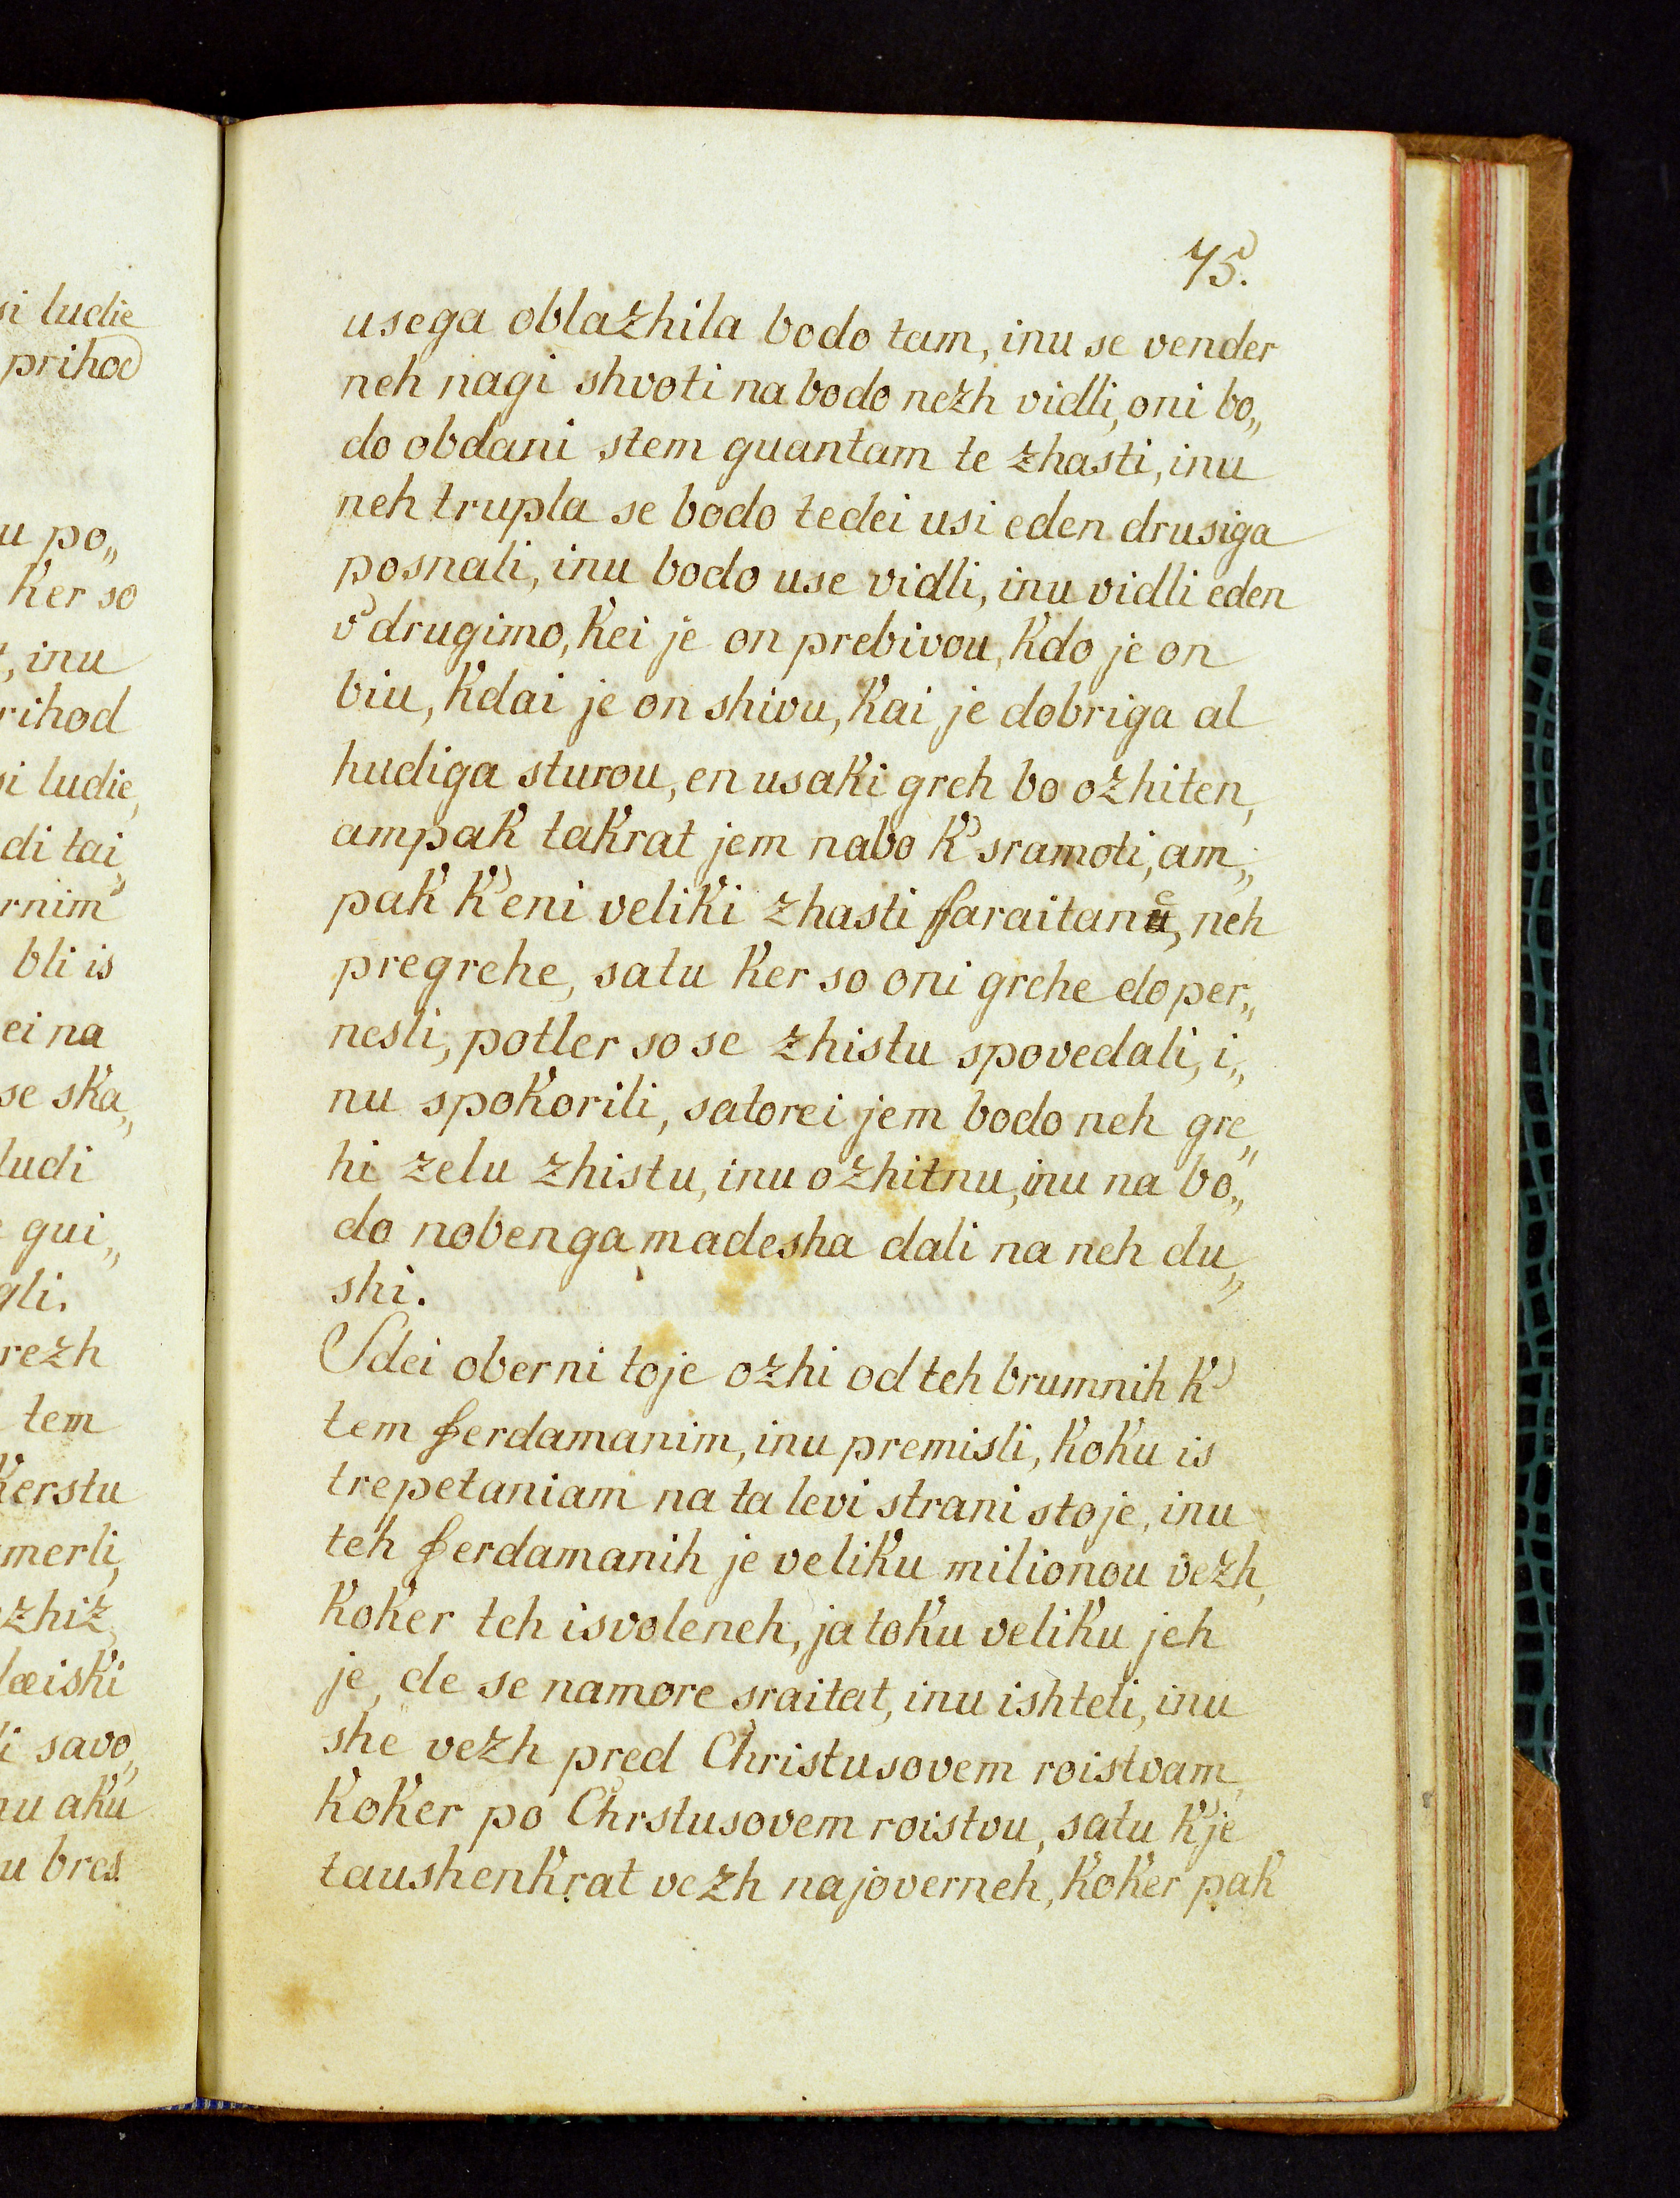 si ludie
prihod
u po„
Ker so
, inu
rihod
si ludie,
di tai„
rnim
bli is
ei na
se ska„
ludi
gui„
gli.
rezh
tem
Kerstu
merli,
zhiz
læiski
li savo„
nu aku
u bres
75.
usega oblazhila bodo tam, inu se vender
neh nagi shvoti na bodo nezh vidli, oni bo„
do obdani stem guantam te zhasti, inu
neh trupla se bodo tedei usi eden drusiga
posnali, inu bodo use vidli, inu vidli eden
v' drugimo, Kei je on prebivou, Kdo je on
biu, Kdai je on shivu, Kai je dobriga al
hudiga sturou, en usaki greh bo ozhiten,
ampak takrat jem nabo K' sramoti, am„
pak K' eni veliki zhasti faraitanu, neh
pregrehe, satu Ker so oni grehe doper„
nesli, potler so se zhistu spovedali, i„
nu spokorili, satorei jem bodo neh gre„
hi zelu zhistu, inu ozhitnu, inu na bo„
do nobenga madesha dali na neh du„
shi.
Sdei oberni toje ozhi od teh brumnih K'
tem ferdamanim, inu premisli, Koku is
trepetaniam na ta levi strani stoje, inu
teh ferdamanih je veliku milionou vezh,
Koker teh isvoleneh, ja toku veliku jeh
je, de se namore sraitat, inu ishteti, inu
she vezh pred Christusovem roistvam,
Koker po Chrstusovem roistvu, satu K'je
taushenkrat vezh najoverneh, Koker pak